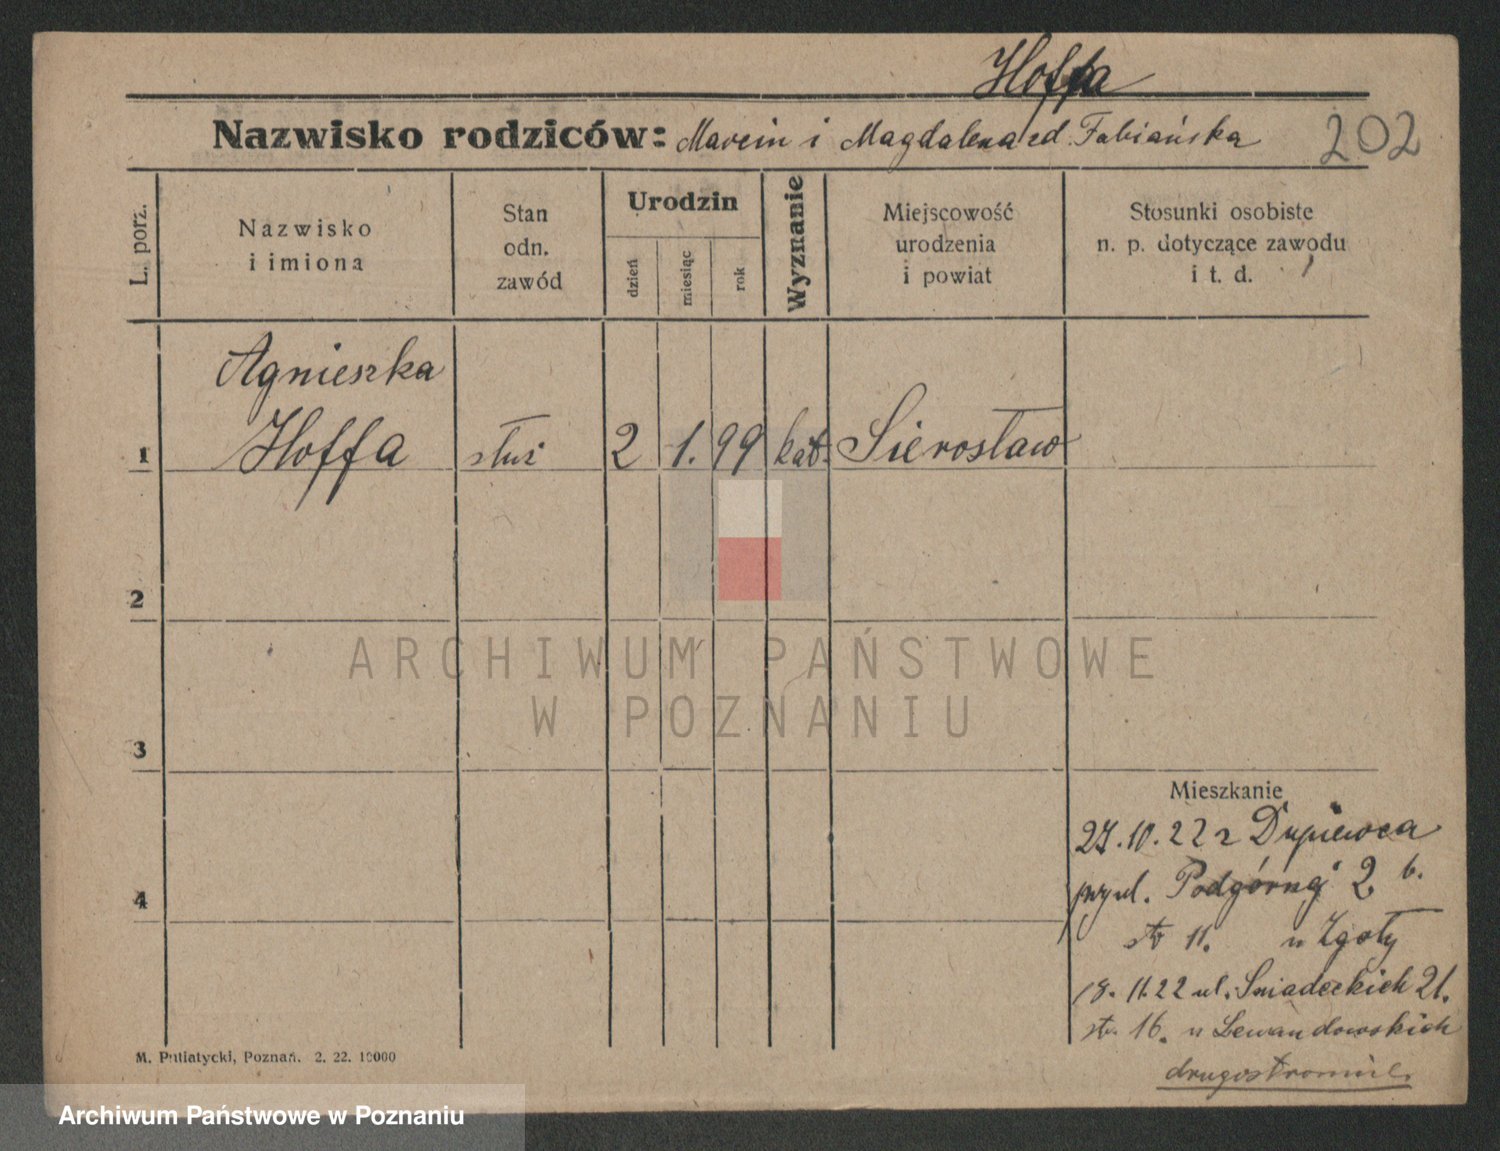 Hoffa
Nazwisko rodziców: Marcin i Magdalena zd. Fabiańska 202
L. porz.
Nazwisko
i imiona
Stan
odn.
zawód
Urodzin
dzień
miesiąc
rok
Wyznanie
Miejscowość
urodzenia
i powiat
Stosunki osobiste
n. p. dotyczące zawodu
i t. d.
Agnieszka
1 Hoffa służ 2 1. 99 kat. Sierosław
2
3
4
Mieszkanie
27.10.22 z Dupiewca
ul. Podgórną 2 b.
st 11. u Zgoły
18.11.22 ul. Sniadeckich 21.
st. 16. u Lewandowskich
drugostronnie.
M. Putiatycki, Poznań. 2. 22. 10000
ARCHIWUM PAŃSTWOWE
W POZNANIU
Archiwum Państwowe w Poznaniu